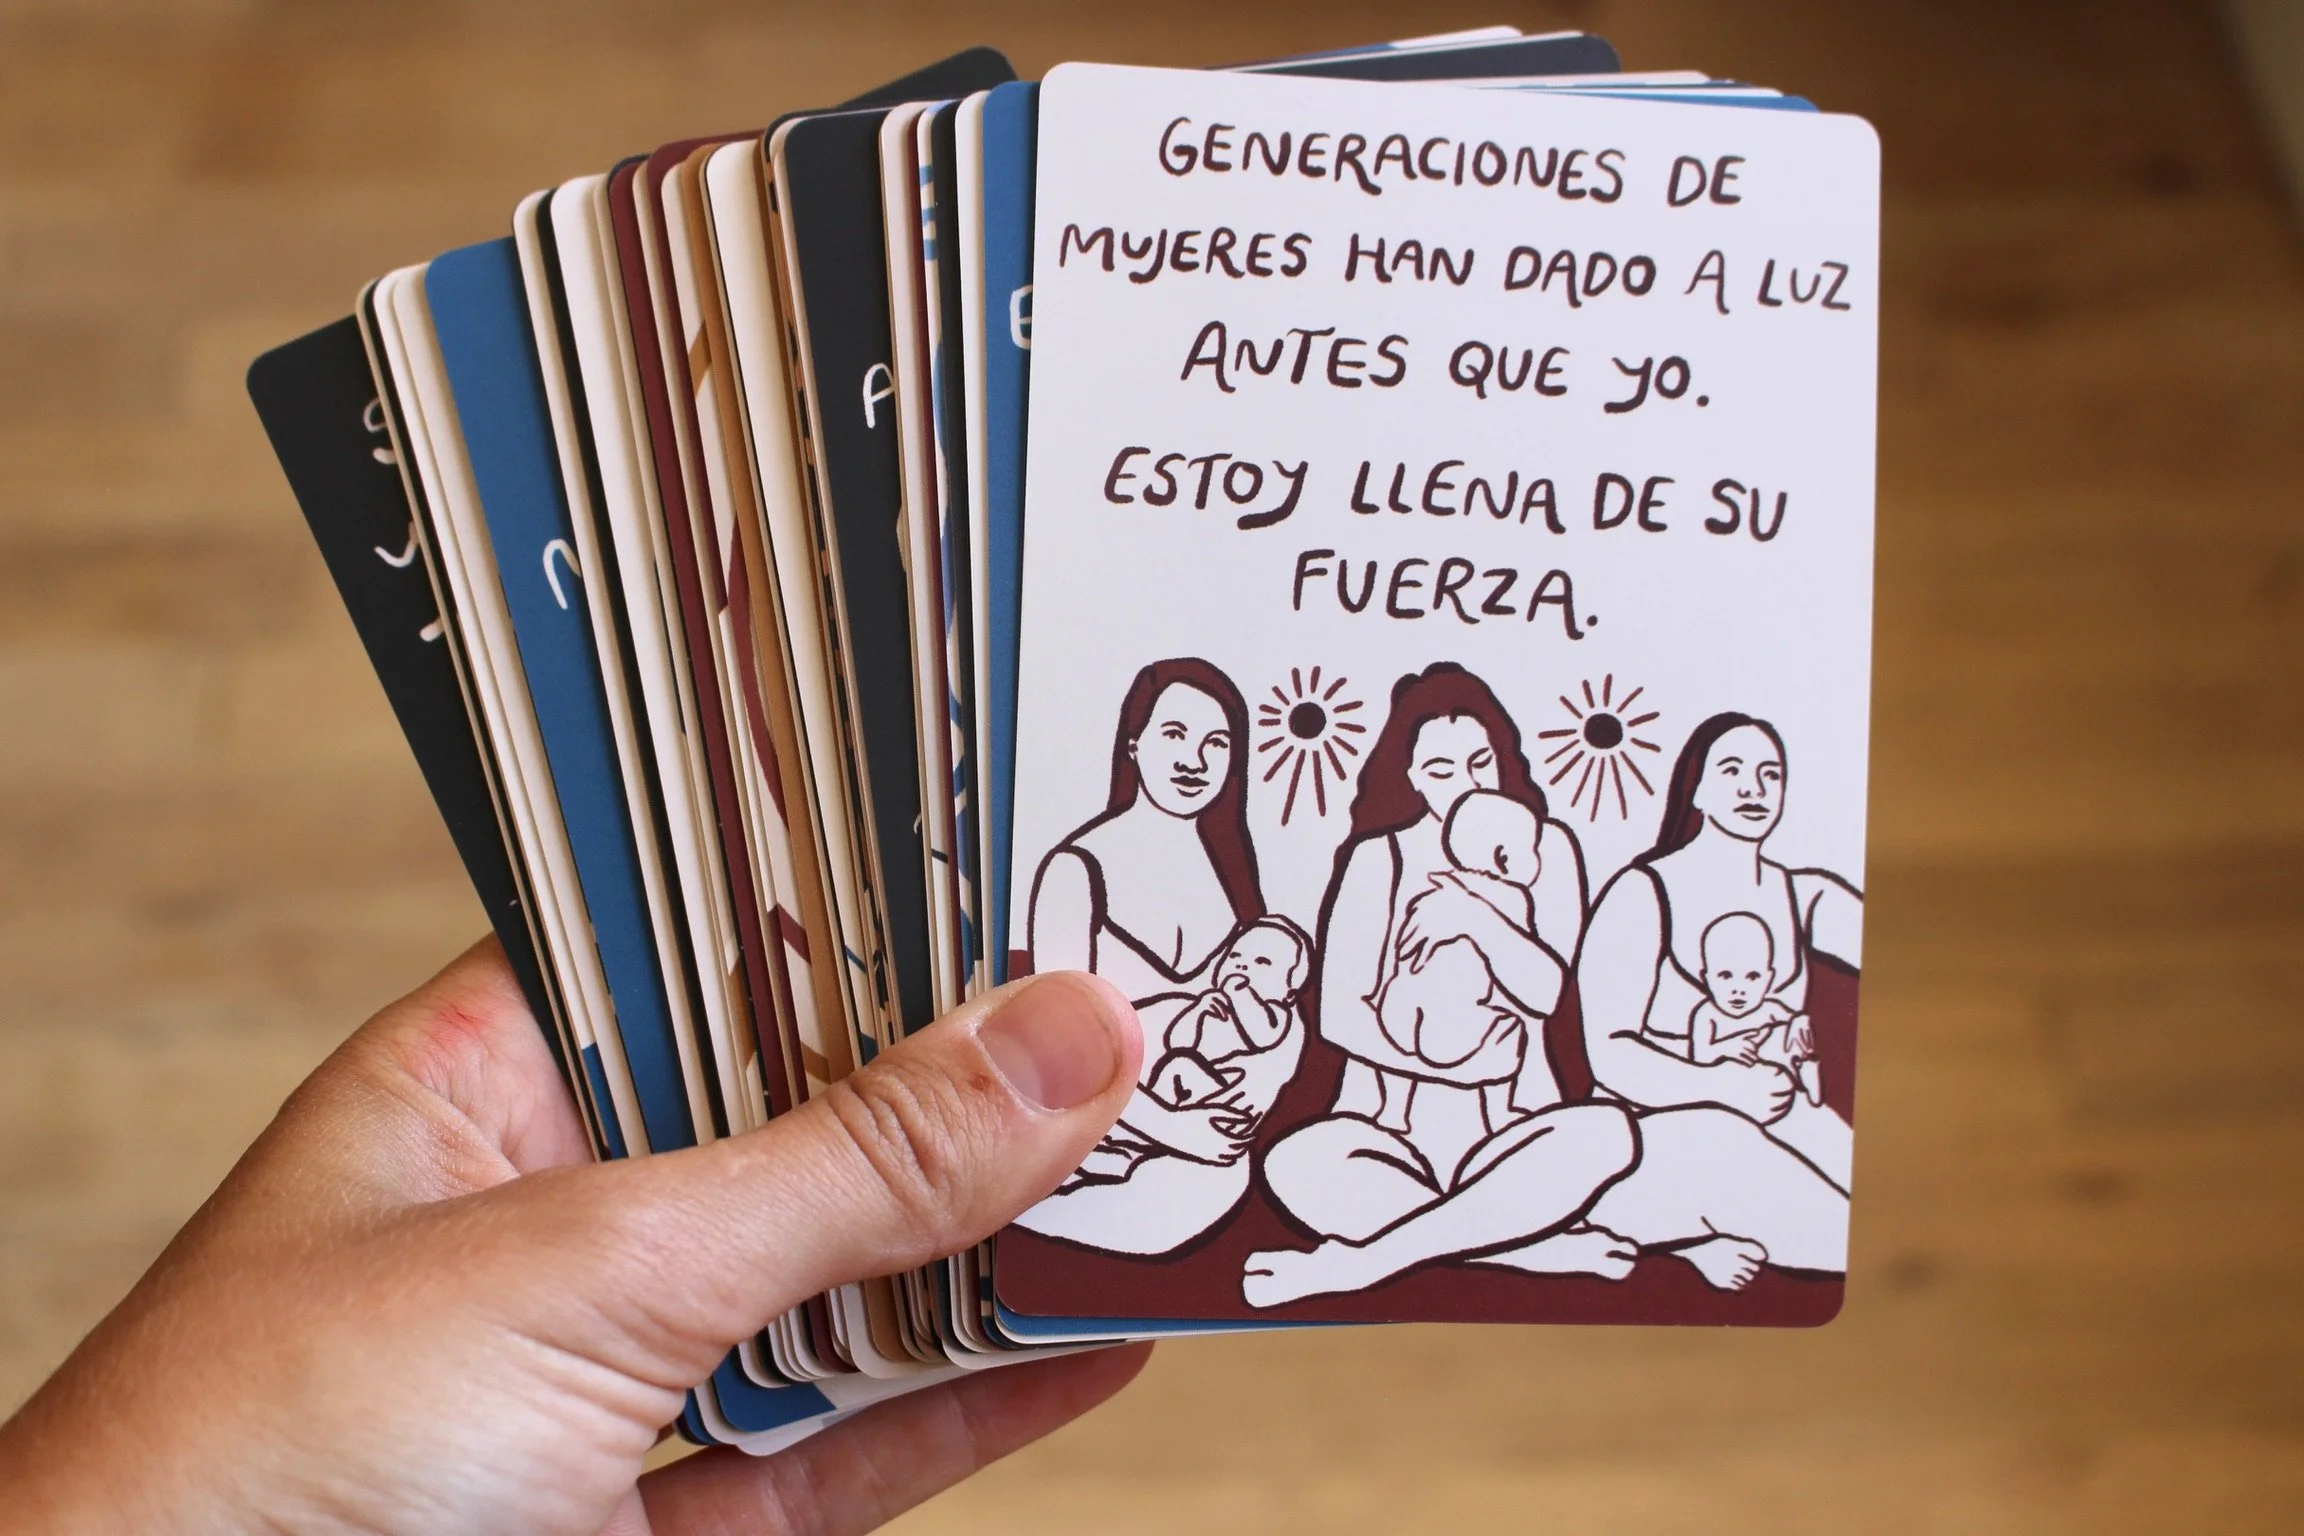 GENERACIONES DE
MUJERES HAN DADO A LUZ
ANTES QUE YO.
ESTOY LLENA DE SU
FUERZA.